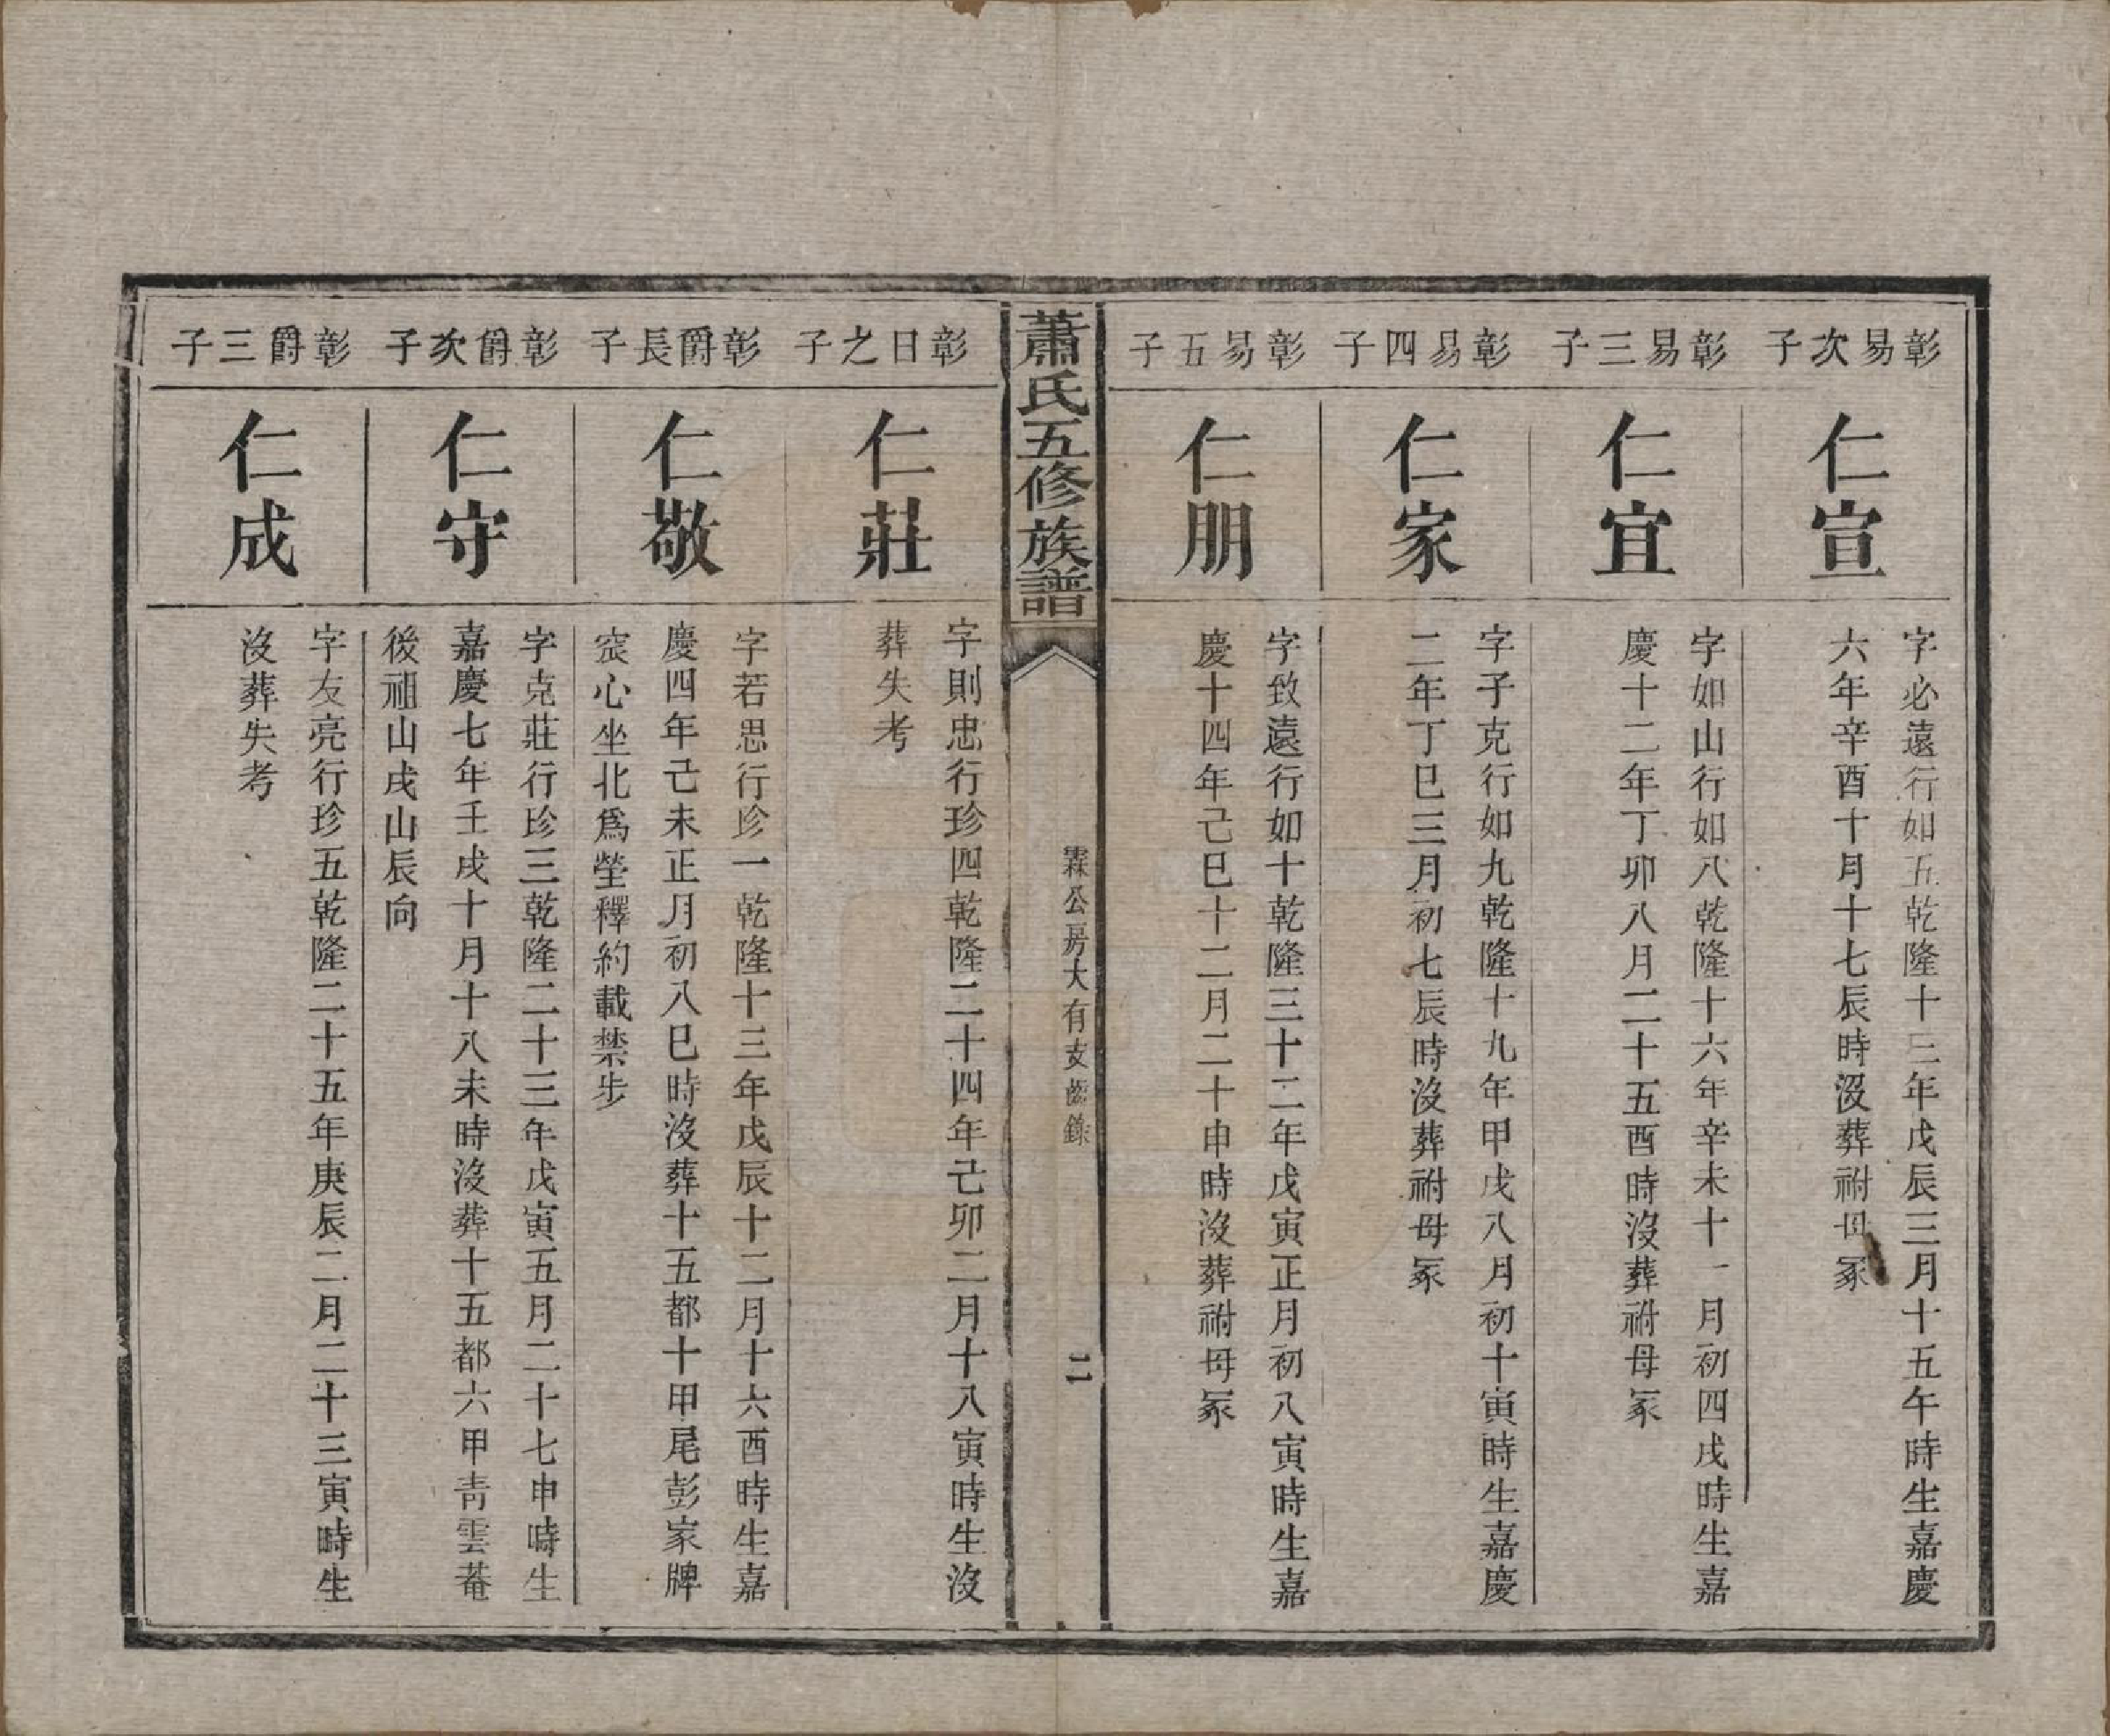 彰易次子
仁宣
字必遠行如五乾隆十三年戊辰三月十五午時生嘉慶
六年辛酉十月十七辰時沒葬祔母冢
彰易三子
仁宜
字如山行如八乾隆十六年辛未十一月初四戌時生嘉
慶十二年丁卯八月二十五酉時沒葬祔母冢
彰易四子
仁家
字子克行如九乾隆十九年甲戌八月初十寅時生嘉慶
二年丁巳三月初七辰時沒葬祔母冢
彰易五子
仁朋
字致遠行如十乾隆三十二年戊寅正月初八寅時生嘉
慶十四年己巳十二月二十申時沒葬祔母冢
蕭氏五修族譜
霖公房大有支齒錄
二
彰日之子
仁莊
字則忠行珍四乾隆二十四年己卯二月十八寅時生沒
葬失考
彰爵長子
仁敬
字若思行珍一乾隆十三年戊辰十二月十六酉時生嘉
慶四年己未正月初八巳時沒葬十五都十甲尾彭家牌
宼心坐北為塋釋約載禁步
彰爵次子
仁守
字克莊行珍三乾隆二十三年戊寅五月二十七申時生
嘉慶七年壬戌十月十八未時沒葬十五都六甲青雲菴
後祖山戌山辰向
彰爵三子
仁成
字友亮行珍五乾隆二十五年庚辰二月二十三寅時生
沒葬失考